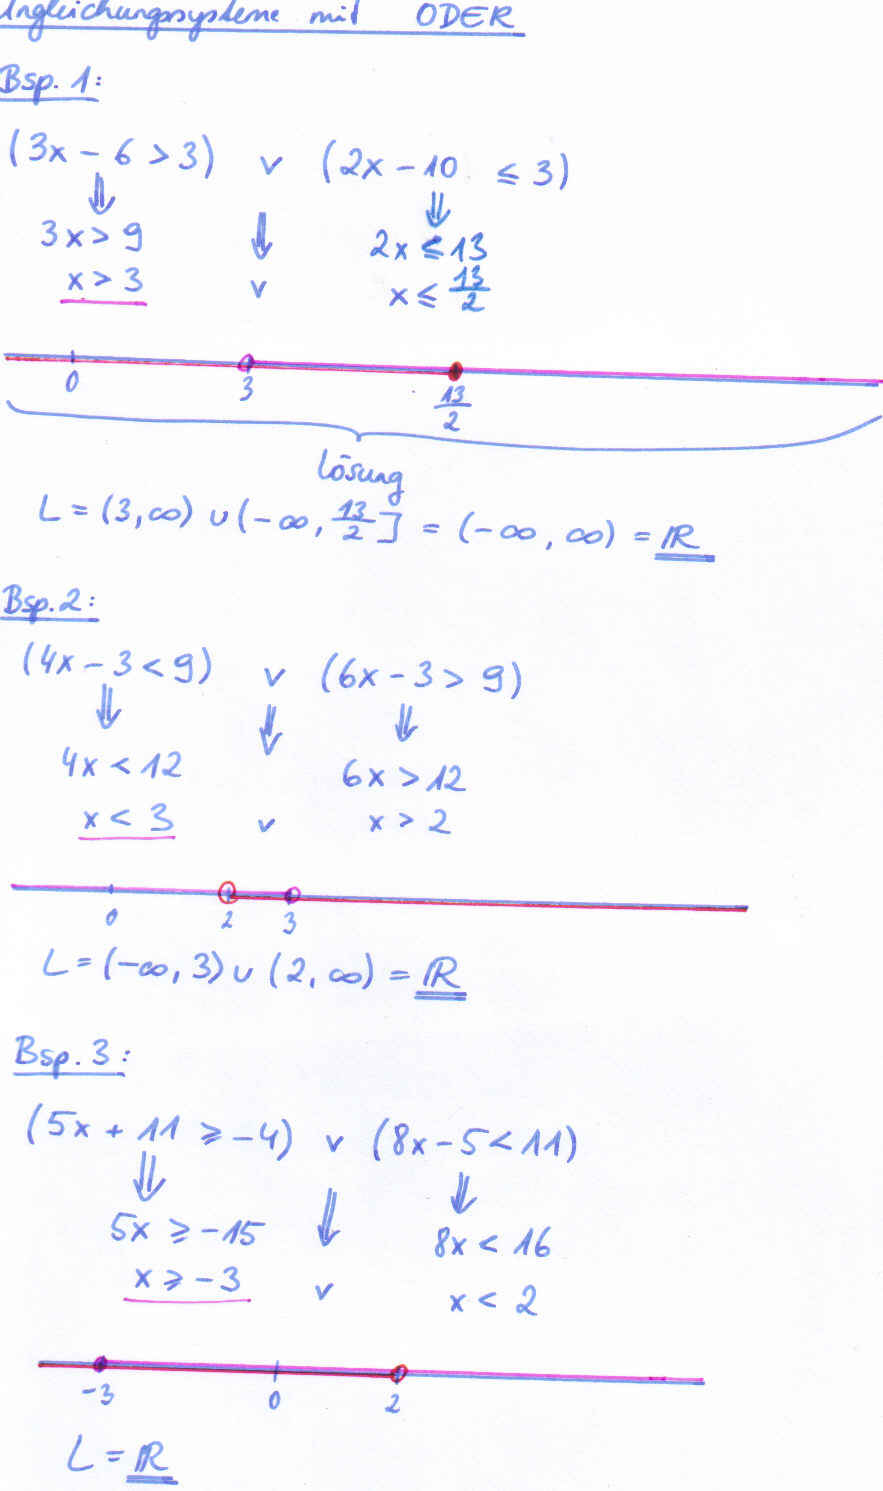 Ungleichungssysteme mit ODER
Bsp. 1:
(3x - 6 > 3) ∨ (2x - 10 ≤ 3)
⇓ ⇓ ⇓
3x > 9 2x ≤ 13
x > 3 ∨ x ≤ 13/2
0 3 13/2
Lösung
L = (3, ∞) ∪ (-∞, 13/2] = (-∞, ∞) = ℝ
Bsp. 2:
(4x - 3 < 9) ∨ (6x - 3 > 9)
⇓ ⇓ ⇓
4x < 12 6x > 12
x < 3 ∨ x > 2
0 2 3
L = (-∞, 3) ∪ (2, ∞) = ℝ
Bsp. 3:
(5x + 11 ≥ -4) ∨ (8x - 5 < 11)
⇓ ⇓ ⇓
5x ≥ -15 8x < 16
x ≥ -3 ∨ x < 2
-3 0 2
L = ℝ